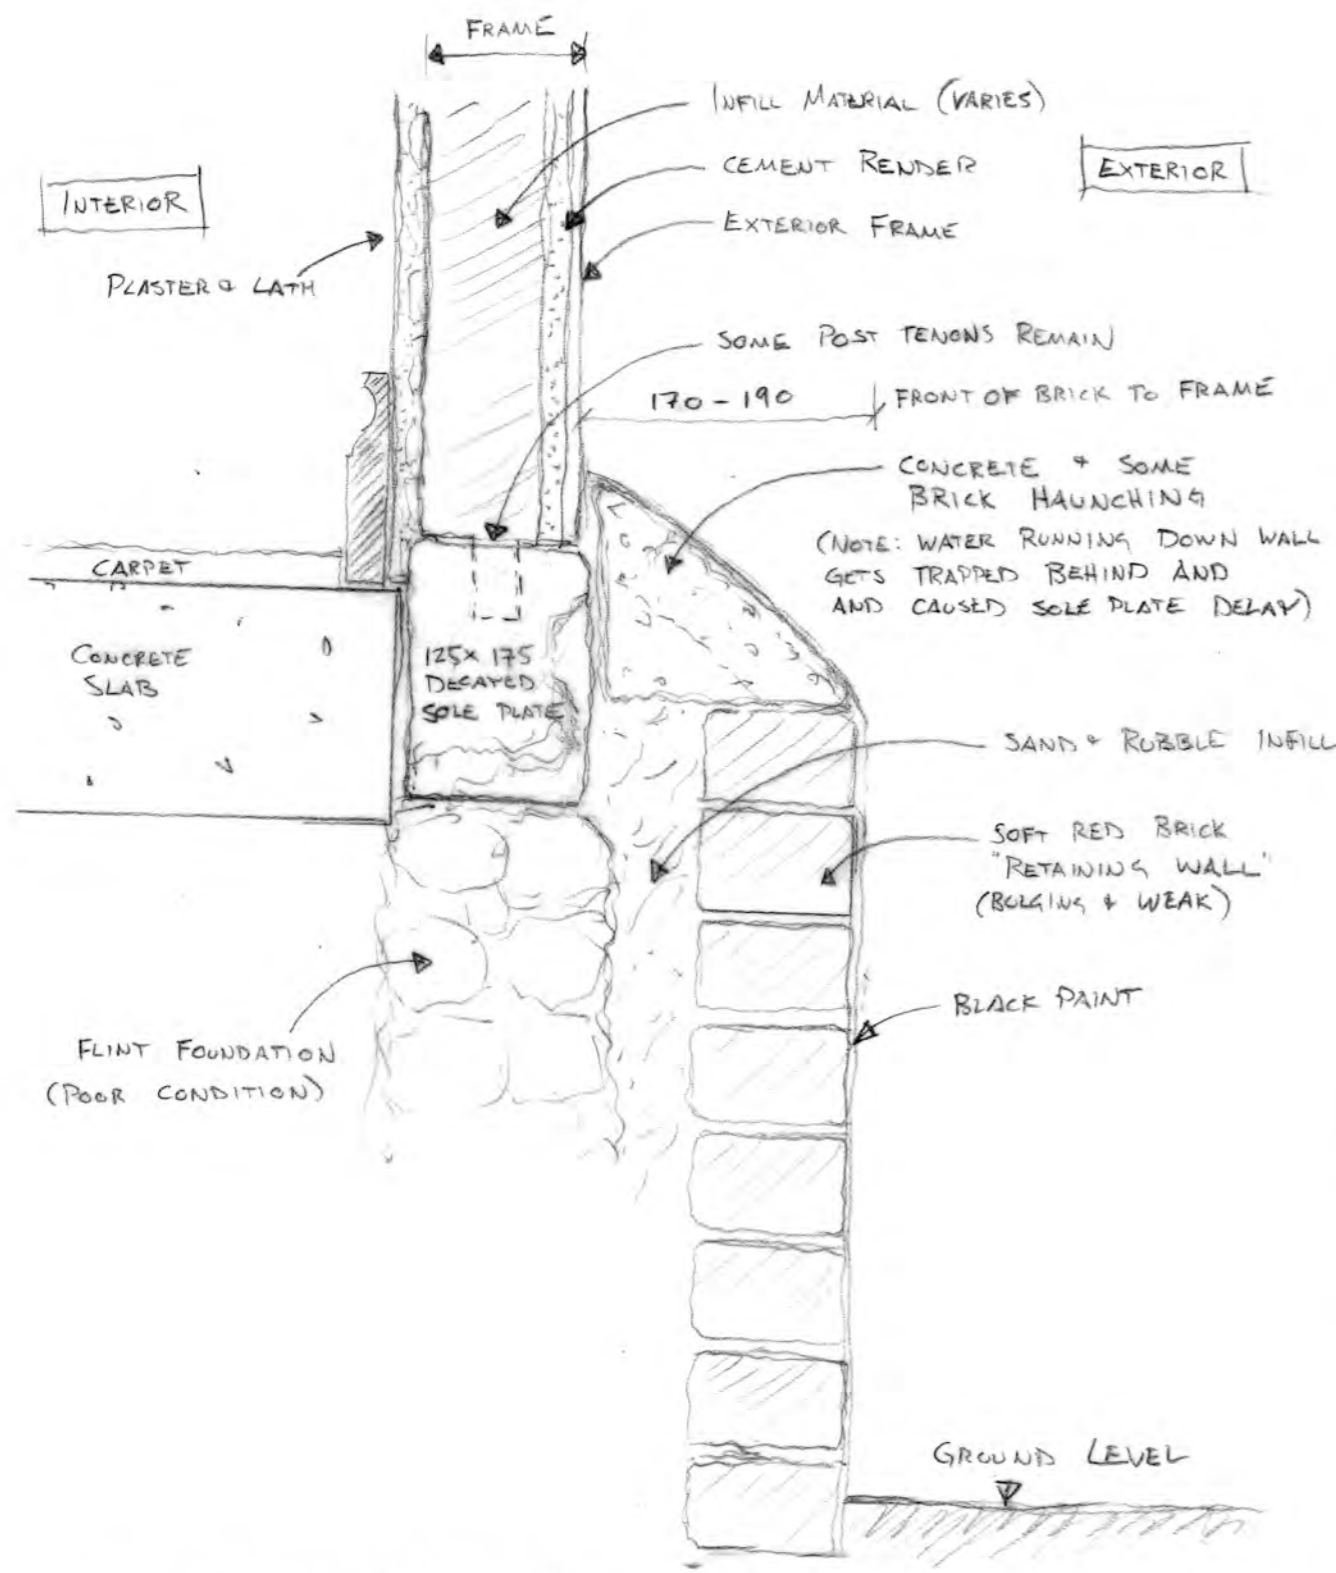 FRAME
INFILL MATERIAL (VARIES)
CEMENT RENDER
EXTERIOR
INTERIOR
EXTERIOR FRAME
PLASTER & LATH
SOME POST TENONS REMAIN
170-190
FRONT OF BRICK TO FRAME
CONCRETE & SOME
BRICK HAUNCHING
(NOTE: WATER RUNNING DOWN WALL
GETS TRAPPED BEHIND AND
AND CAUSED SOLE PLATE DELAY)
CARPET
CONCRETE
SLAB
125x175
DECAYED
SOLE PLATE
SAND & RUBBLE INFILL
SOFT RED BRICK
"RETAINING WALL"
(BULGING & WEAK)
BLACK PAINT
FLINT FOUNDATION
(POOR CONDITION)
GROUND LEVEL